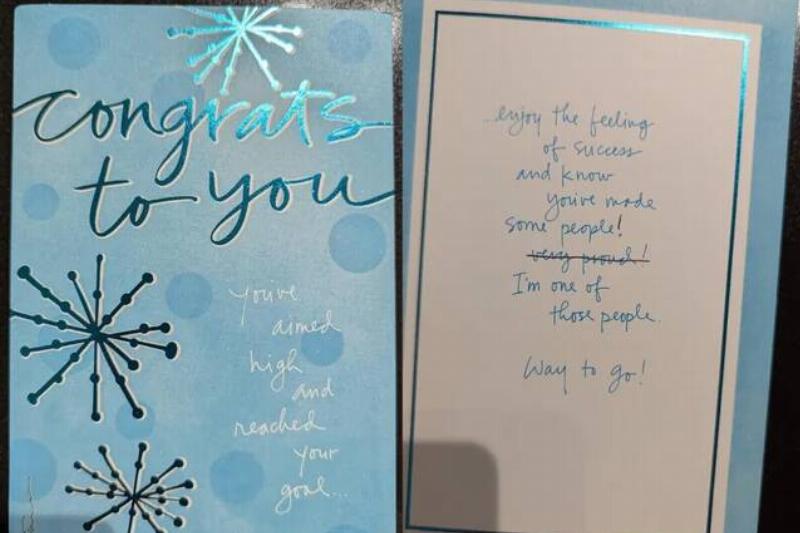 congrats
to you
you've
aimed
high
and
reached
your
goal...
...enjoy the feeling
of success
and know
you've made
some people!
very proud!
I'm one of
those people.
Way to go!